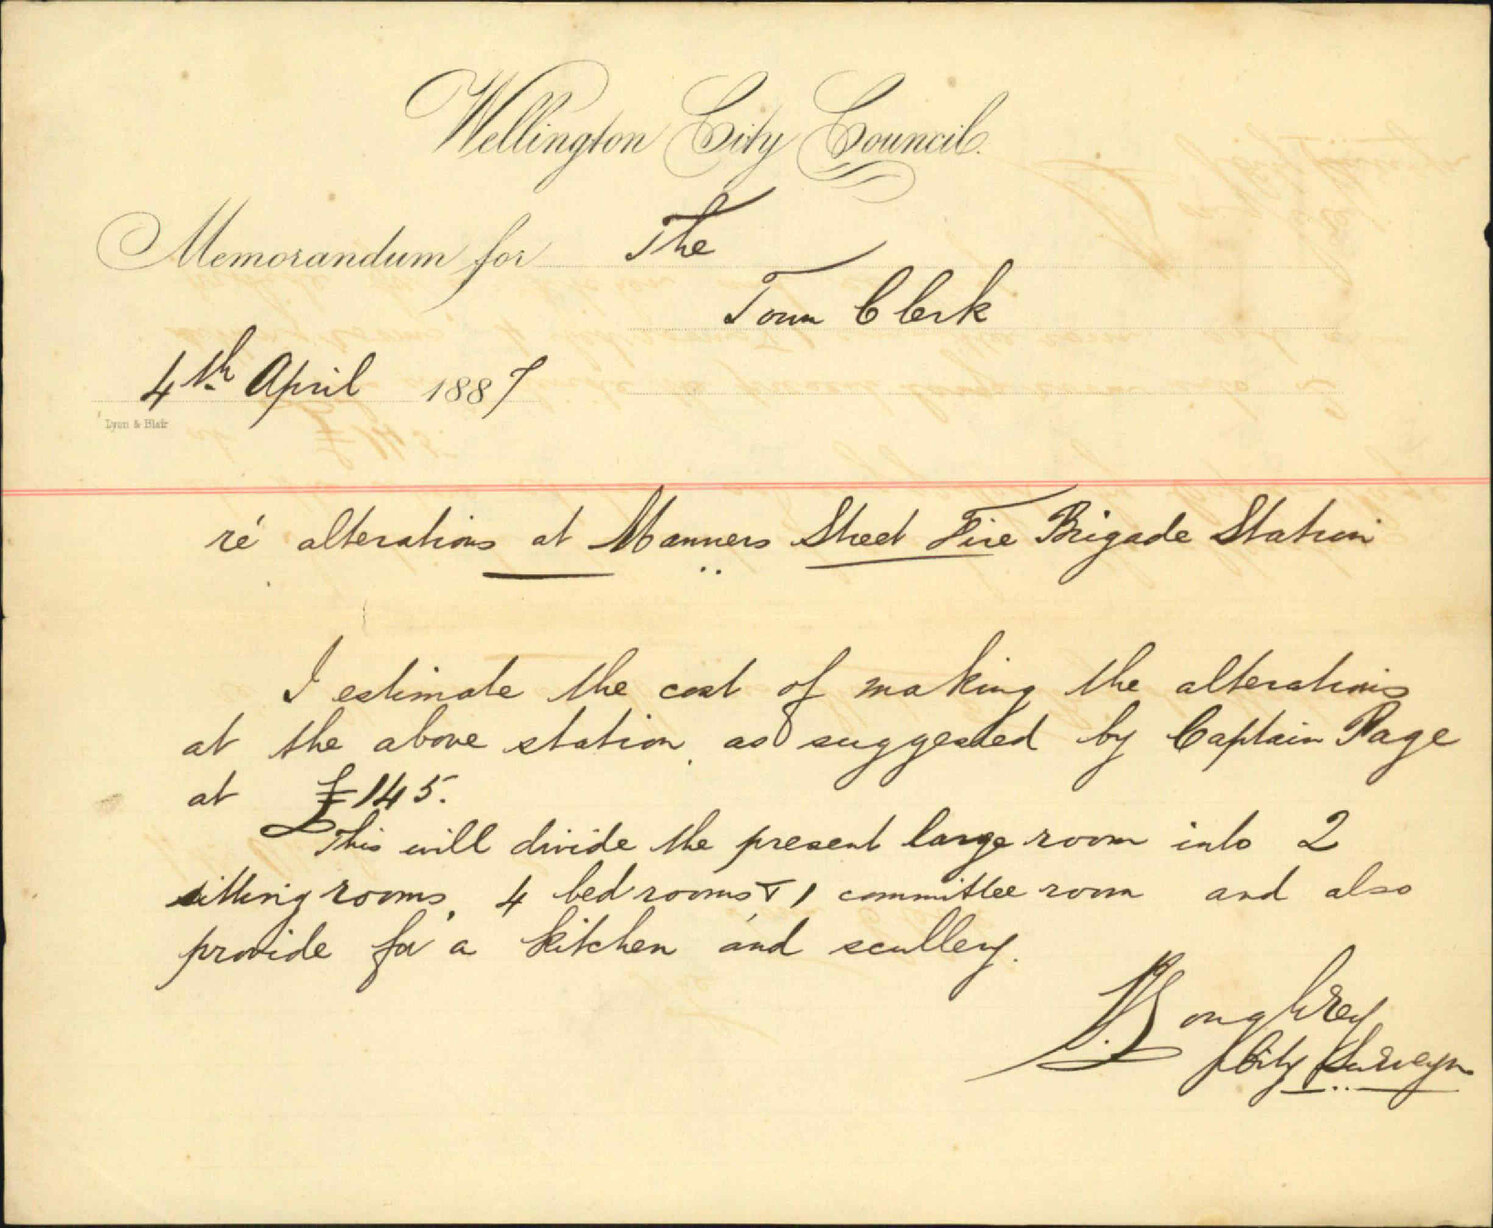 Wellington City Council.
Memorandum for The
Town Clerk
4th April 1887
Lyon & Blair
ré alterations at Manners Street Fire Brigade Station
I estimate the cost of making the alterations
at the above station, as suggested by Captain Page
at £145.
This will divide the present large room into 2
sitting rooms, 4 bedrooms & 1 committee room and also
provide for a kitchen and scullery.
Loughrey
City Surveyor